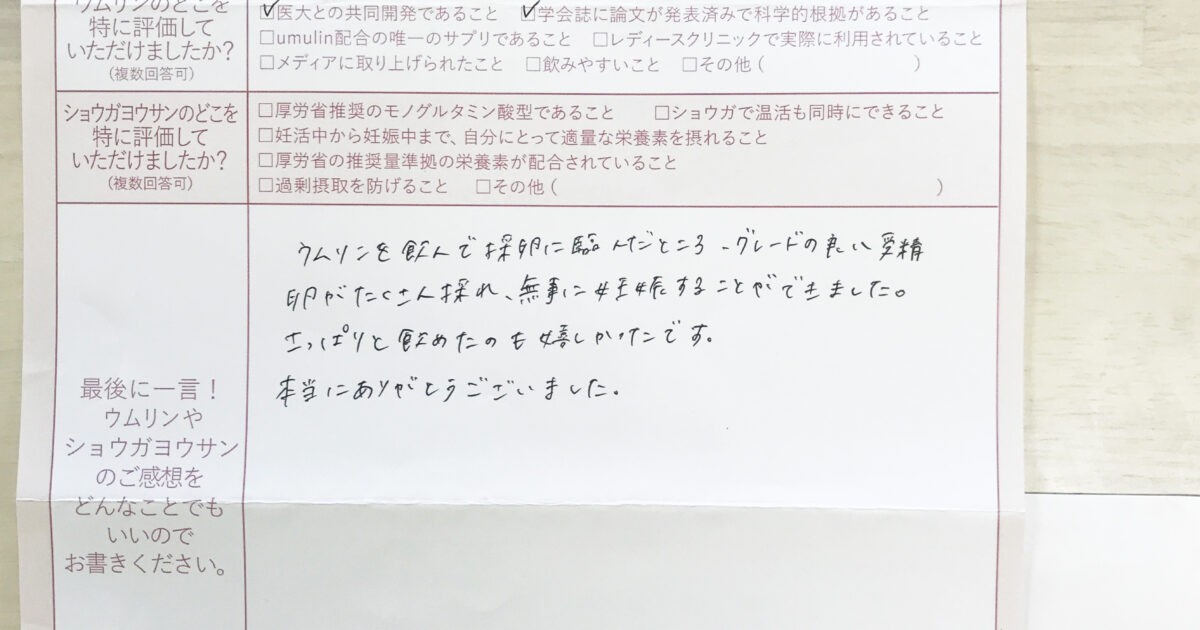 ウムリンのどこを
特に評価して
いただけましたか?
(複数回答可)
☑医大との共同開発であること ☑学会誌に論文が発表済みで科学的根拠があること
□umulin配合の唯一のサプリであること □レディースクリニックで実際に利用されていること
□メディアに取り上げられたこと □飲みやすいこと □その他( )
ショウガヨウサンのどこを
特に評価して
いただけましたか?
(複数回答可)
□厚労省推奨のモノグルタミン酸型であること □ショウガで温活も同時にできること
□妊活中から妊娠中まで、自分にとって適量な栄養素を摂れること
□厚労省の推奨量準拠の栄養素が配合されていること
□過剰摂取を防げること □その他( )
最後に一言!
ウムリンや
ショウガヨウサン
のご感想を
どんなことでも
いいので
お書きください。
ウムリンを飲んで採卵に臨んだところ、グレードの良い受精
卵がたくさん採れ、無事に妊娠することができました。
さっぱりと飲めたのも嬉しかったです。
本当にありがとうございました。